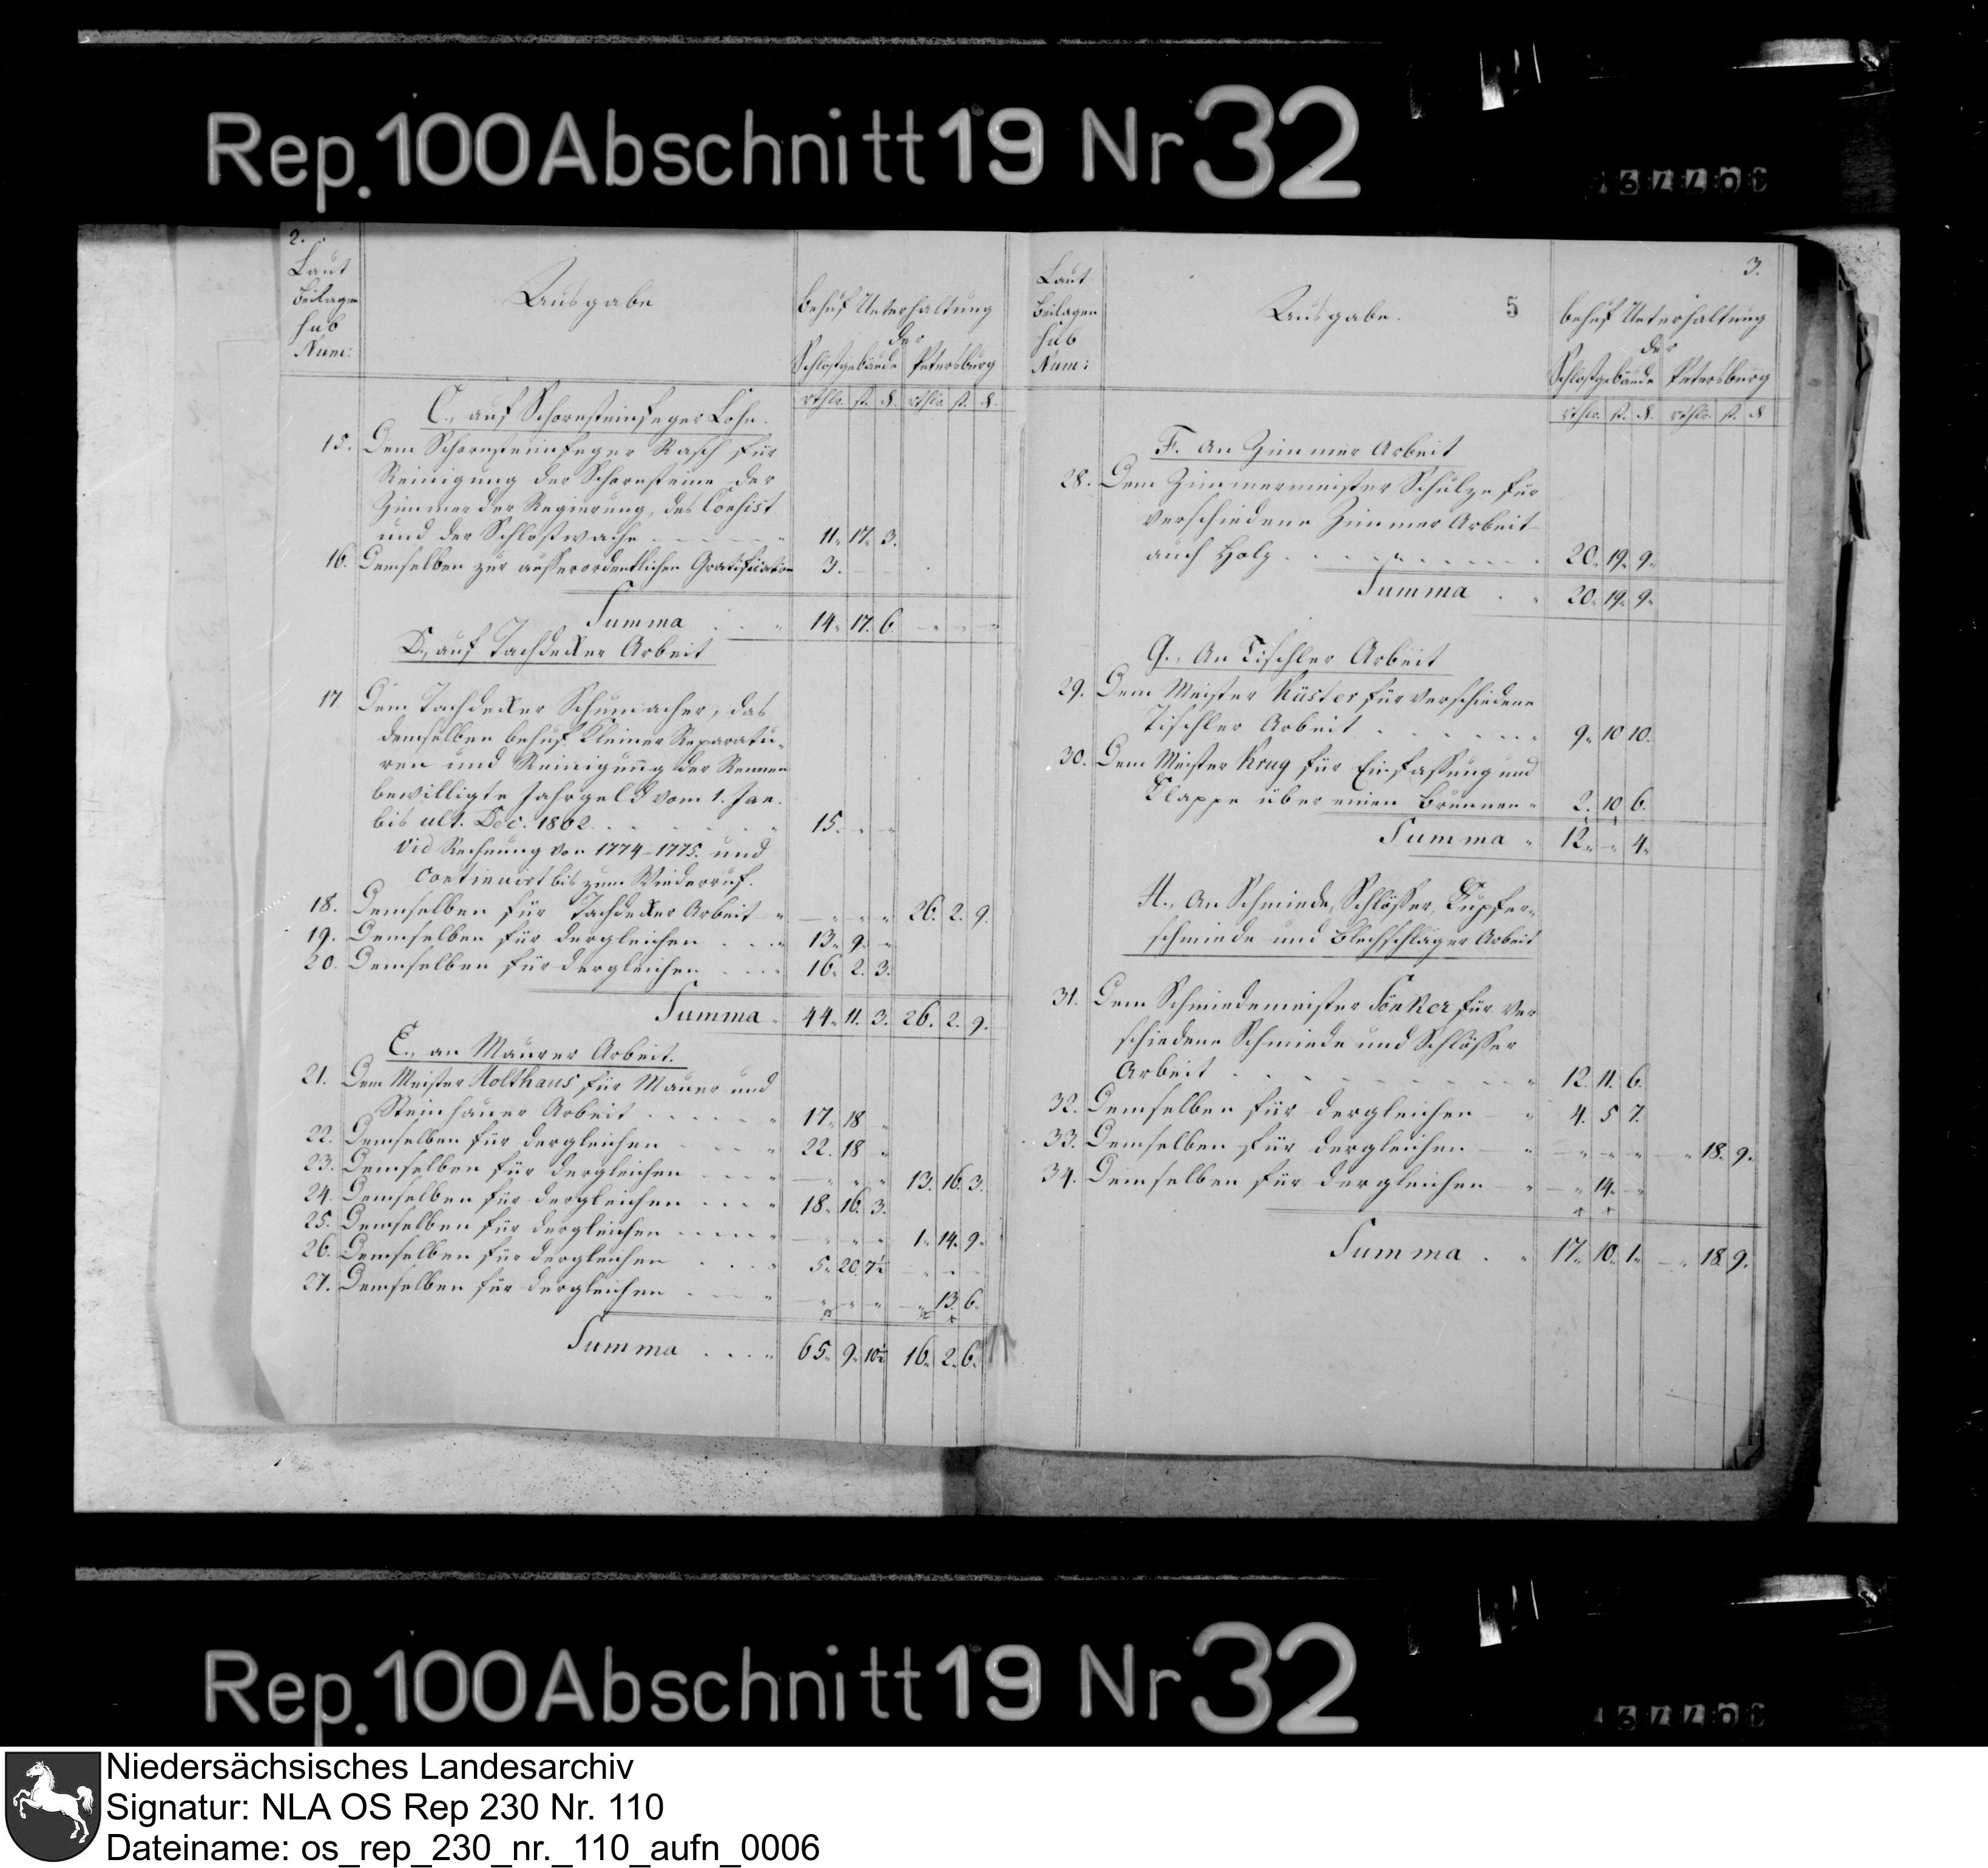 Rep.100 Abschnitt 19 Nr 32
2.
Laut
Beilagen
sub
Num:
Ausgabe
behuf Unterhaltung
der
Schloßgebäude Petersburg
rthlr. ß. d. rthlr. ß. d.
C., auf Schornsteinfeger Lohn.
15. Dem Schornsteinfeger Rasch für
Reinigung der Schornsteine der
Zimmer der Regierung, des Consist
und der Schloßwache . . . . 11. 17. 3.
16. Demselben zur ausserordentlichen Gratification 3.
Summa . . 14. 17. 6
D., auf Tachdecker Arbeit
17 Dem Tachdecker Schumacher, das
demselben behuf kleiner Reparatu-
ren und Reinigung der Rennen
bewilligte Jahrgeld vom 1. Jan.
bis ult. Dec. 1802 . . . . 15. - -
vid Rechnung von 1774-1775. und
continuirt bis zum Wiederruf.
18. Demselben für Tachdecker Arbeit - - - 26. 2. 9.
19. Demselben für dergleichen . . . 13. 9. -
20. Demselben für dergleichen . . . 16. 2. 3.
Summa 44. 11. 3. 26. 2. 9.
E., an Maurer Arbeit.
21. Dem Meister Holthaus für Mauer und
Steinhauer Arbeit . . . . 17. 18 -
22. Demselben für dergleichen . . . 22. 18 -
23. Demselben für dergleichen . . . - - - 13. 16. 3.
24. Demselben für dergleichen . . . 18. 16. 3.
25. Demselben für dergleichen . . . . - - - 1. 14. 9.
26. Demselben für dergleichen . . . 5. 20. 7½ - - -
27. Demselben für dergleichen . . . - - - - 13. 6.
Summa . . . 65. 9. 10½ 16. 2. 6.
3.
Laut
Beilagen
sub
Num:
Ausgabe.
5
behuf Unterhaltung
der
Schloßgebäude Petersburg
rthlr. ß. d. rthlr. ß. d
F. An Zimmer Arbeit
28. Dem Zimmermeister Schulze für
verschiedene Zimmer Arbeit
auch Holz . . . . . . 20. 19. 9.
Summa . . 20. 19. 9.
G., An Tischler Arbeit
29. Dem Meister Küster für verschiedene
Tischler Arbeit . . . . . 9. 10 10.
30. Dem Meister Krug für Einfassung und
Klappe über einen Brunnen 2. 10 6.
Summa 12. - 4.
H., An Schmiede, Schlösser, Kupfer-
schmiede und Blechschläger Arbeit
31. Dem Schmiedemeister Fönker für ver
schiedene Schmiede und Schlösser
Arbeit . . . . . . 12. 11. 6.
32. Demselben für dergleichen 4. 5 7.
33. Demselben für dergleichen - - - - 18. 9.
34. Demselben für dergleichen - 14. -
Summa . . 17. 10. 1. - 18. 9.
Rep.100 Abschnitt 19 Nr 32
Niedersächsisches Landesarchiv
Signatur: NLA OS Rep 230 Nr. 110
Dateiname: os_rep_230_nr._110_aufn_0006